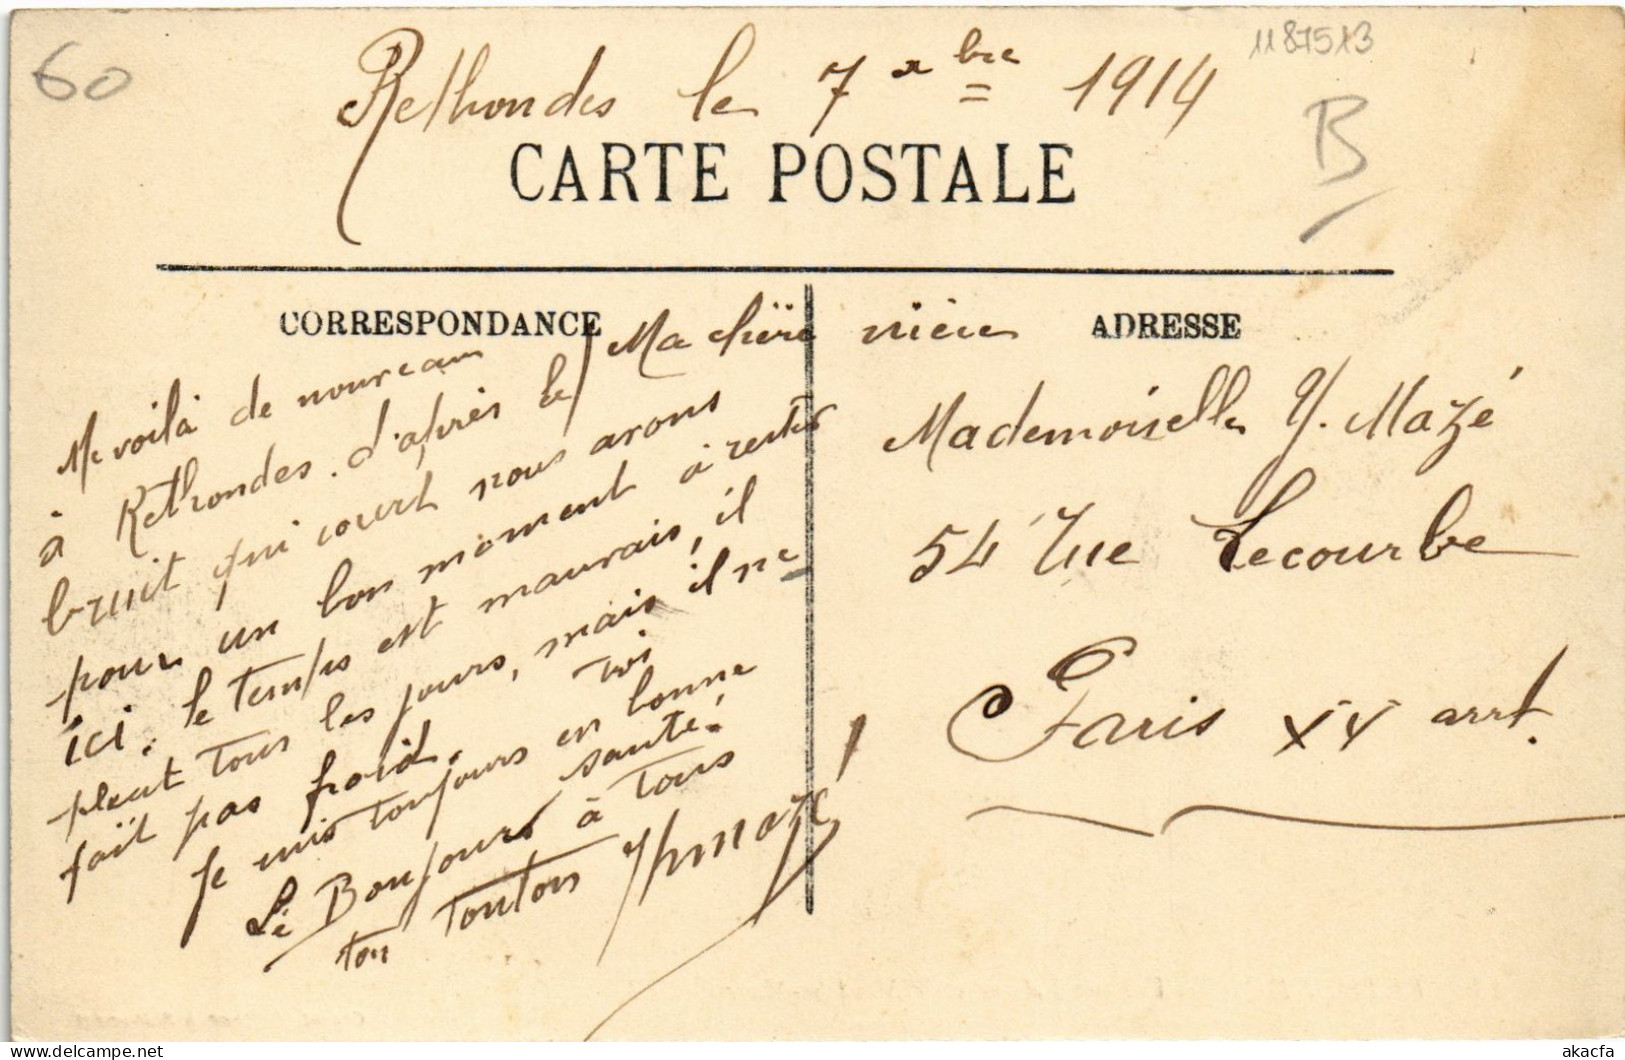 60
1187513
B
Rethondes le 7 xbre 1914
CARTE POSTALE
CORRESPONDANCE
ADRESSE
Ma chère nièce
Me voilà de nouveau
à Rethondes. d'après le
bruit qui court nous avons
pour un bon moment à rester
ici. le temps est mauvais, il
pleut tous les jours, mais il ne
fait pas froid.
Je suis toujours en bonne
santé.
Le Bonjours à tous
ton tonton
Mademoiselle Y. Mazé
54 rue Lecourbe
Paris XV arrt.
akacfa